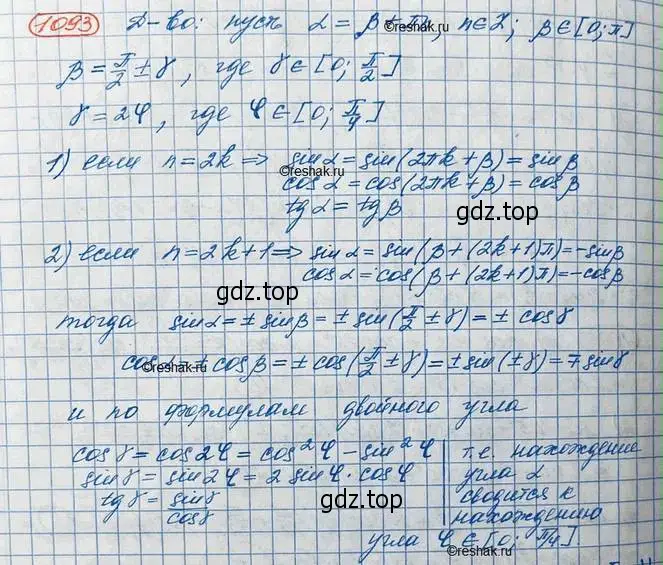 1093 Д-во: пусть α = β + πn, n ∈ Z; β ∈ [0; π]
β = π/2 ± γ, где γ ∈ [0; π/2]
γ = 2φ, где φ ∈ [0; π/4]
©reshak.ru
1) если n = 2k ⇒ sin α = sin(2πk + β) = sin β
cos α = cos(2πk + β) = cos β
tg α = tg β
gdz.top
2) если n = 2k + 1 ⇒ sin α = sin(β + (2k+1)π) = -sin β
cos α = cos(β + (2k+1)π) = -cos β
gdz.top
тогда sin α = ± sin β = ± sin(π/2 ± γ) = ± cos γ
cos α = ± cos β = ± cos(π/2 ± γ) = ± sin(±γ) = ∓ sin γ
©reshak.ru
и по формулам двойного угла
cos γ = cos 2φ = cos²φ - sin²φ | т.е. нахождение
sin γ = sin 2φ = 2 sin φ · cos φ | угла α
tg γ = sin γ / cos γ | сводится к
gdz.top
нахождению
угла φ ∈ [0; π/4].
©reshak.ru